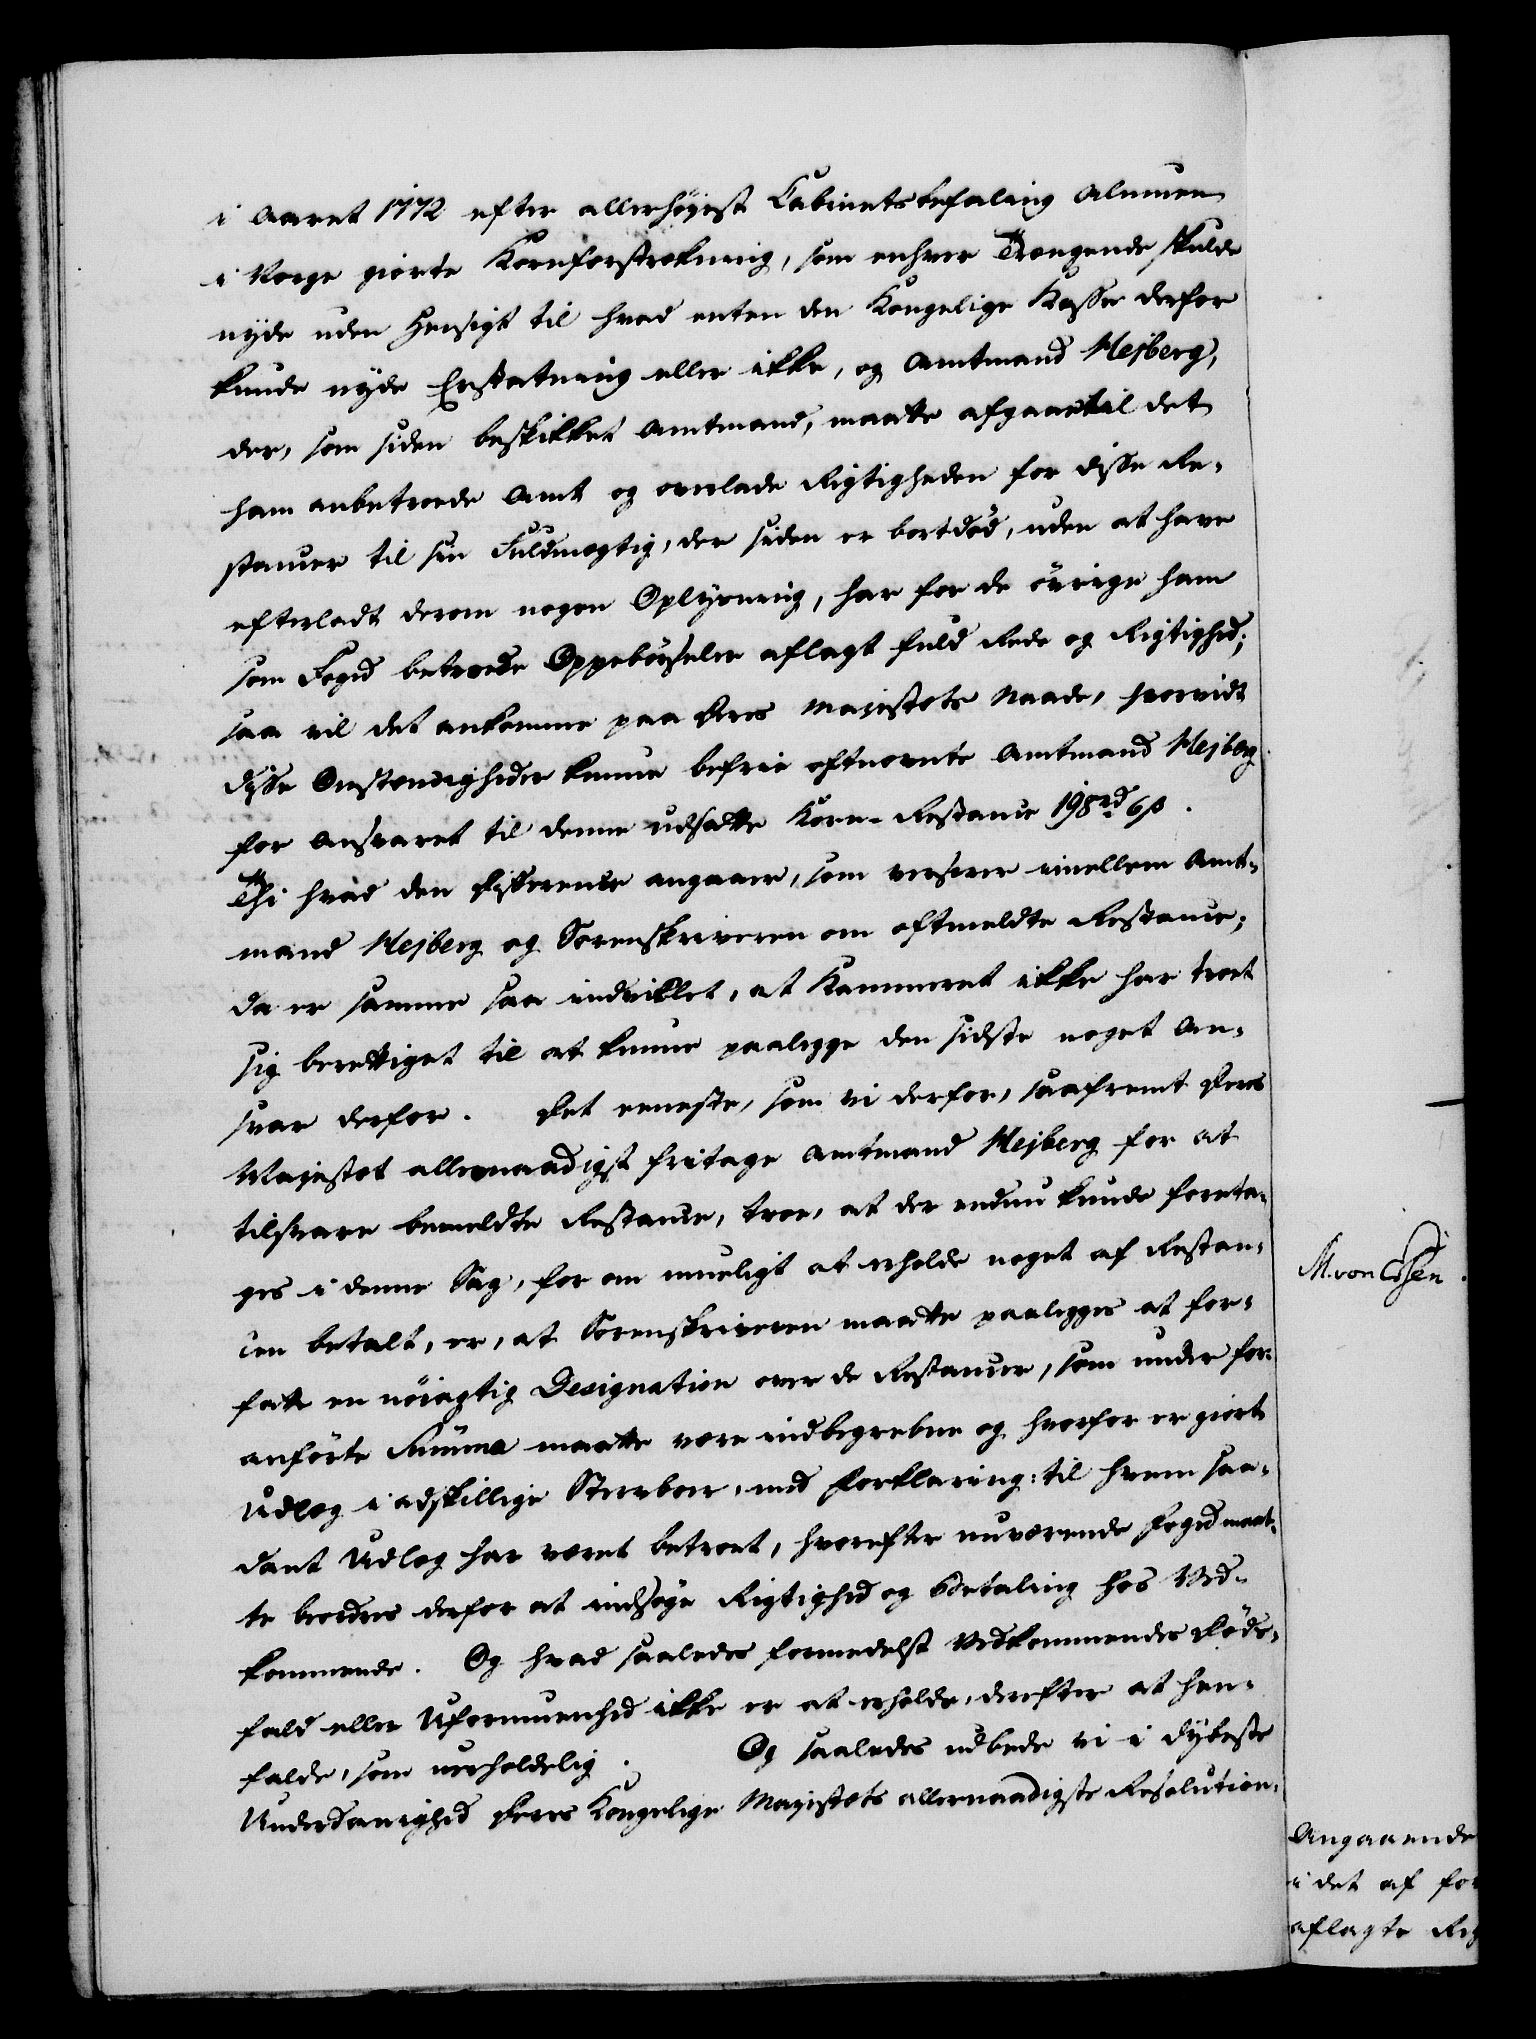 i Aaret 1772 efter allerhøyest Cabinetsbefaling Almuen
i Norge giorte Kornforstrekning, som enhver Trængende skulde
nyde uden Hensigt til hvad enten den Kongelige Kasse derfor
kunde nyde Erstatning eller ikke, og Amtmand Mejberg,
der, som siden beskikket Amtmand, maatte afgaae til det
ham anbetroede Amt og overlade Rigtigheden for disse Re-
stancer til sin Fuldmægtig, der siden er bortdöd, uden at have
efterladt derom nogen Oplysning, har for de övrige ham
som Foged betroede Oppebörseler aflagt fuld Rede og Rigtighed;
saa vil det ankomme paa Deres Majestæts Naade, hvorvidt
disse Omstændigheder kunne befrie oftnevnte Amtmand Mejberg
for Ansvaret til denne udsatte Korn-Restance 198 rd 6 β.
Thi hvad den Difference angaaer, som verserer imellem Amt-
mand Mejberg og Sorenskriveren om oftmeldte Restance;
da er samme saa indviklet, at Kammeret ikke har troet
sig berettiget til at kunne paalegge den sidste noget An-
svar derfor. Det eeneste, som vi derfor, saafremt Deres
Majestæt allernaadigst fritage Amtmand Mejberg for at
tilsvare bemeldte Restance, troe, at der endnu kunde foreta-
ges i denne Sag, for om mueligt at erholde noget af Restan-
cen betalt, er, at Sorenskriveren maatte paalegges at for-
fatte en nöiagtig Designation over de Restancer, som under for-
anförte Summa maatte være indbegrebne og hvorfor er giort
Udlæg i adskillige Sterboer, med Forklaring: til hvem saa-
dant Udlæg har været betroet, hvorefter nuværende Foged maat-
te beordres derfor at indsöge Rigtighed og Betaling hos Ved-
kommende. Og hvad saaledes formedelst Vedkommendes Döds-
fald eller Uformuenhed ikke er at erholde, derefter at hen-
falde, som uerholdelig. Og saaledes udbede vi i dybeste
Underdanighed Deres Kongelige Majestæts allernaadigste Resolution.
M. von Essen.
Angaaende
i det af for
aflagte Reg